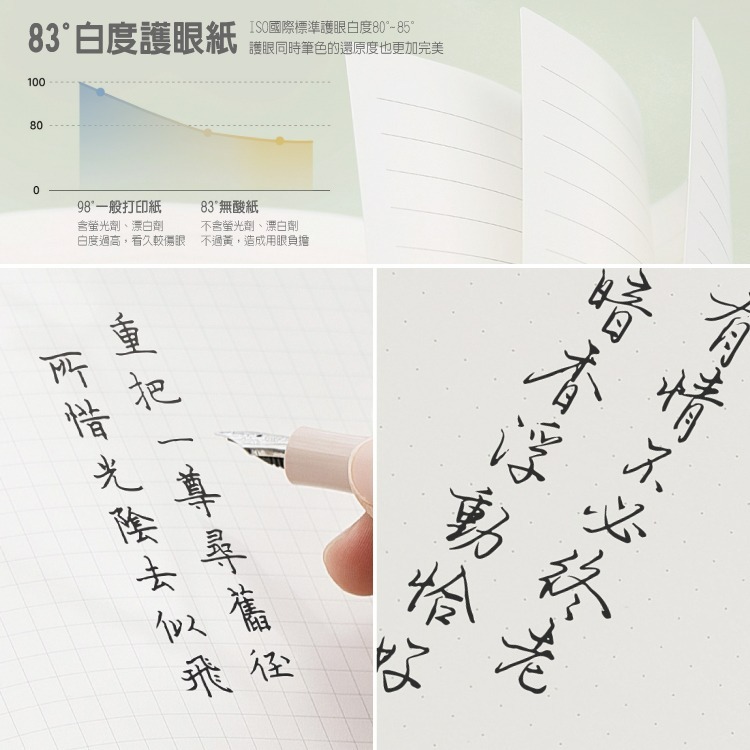 83°白度護眼紙
ISO國際標準護眼白度80°~85°
護眼同時筆色的還原度也更加完美
100
80
0
98°一般打印紙
含螢光劑、漂白劑
白度過高，看久較傷眼
83°無酸紙
不含螢光劑、漂白劑
不過黃，造成用眼負擔
重把一尊尋舊徑
所惜光陰去似飛
有情不必終老
暗香浮動恰好